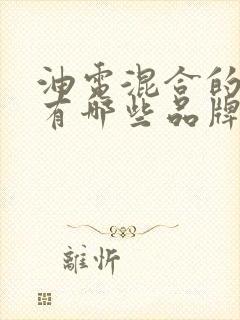 油电混合的
有哪些品牌
離忻